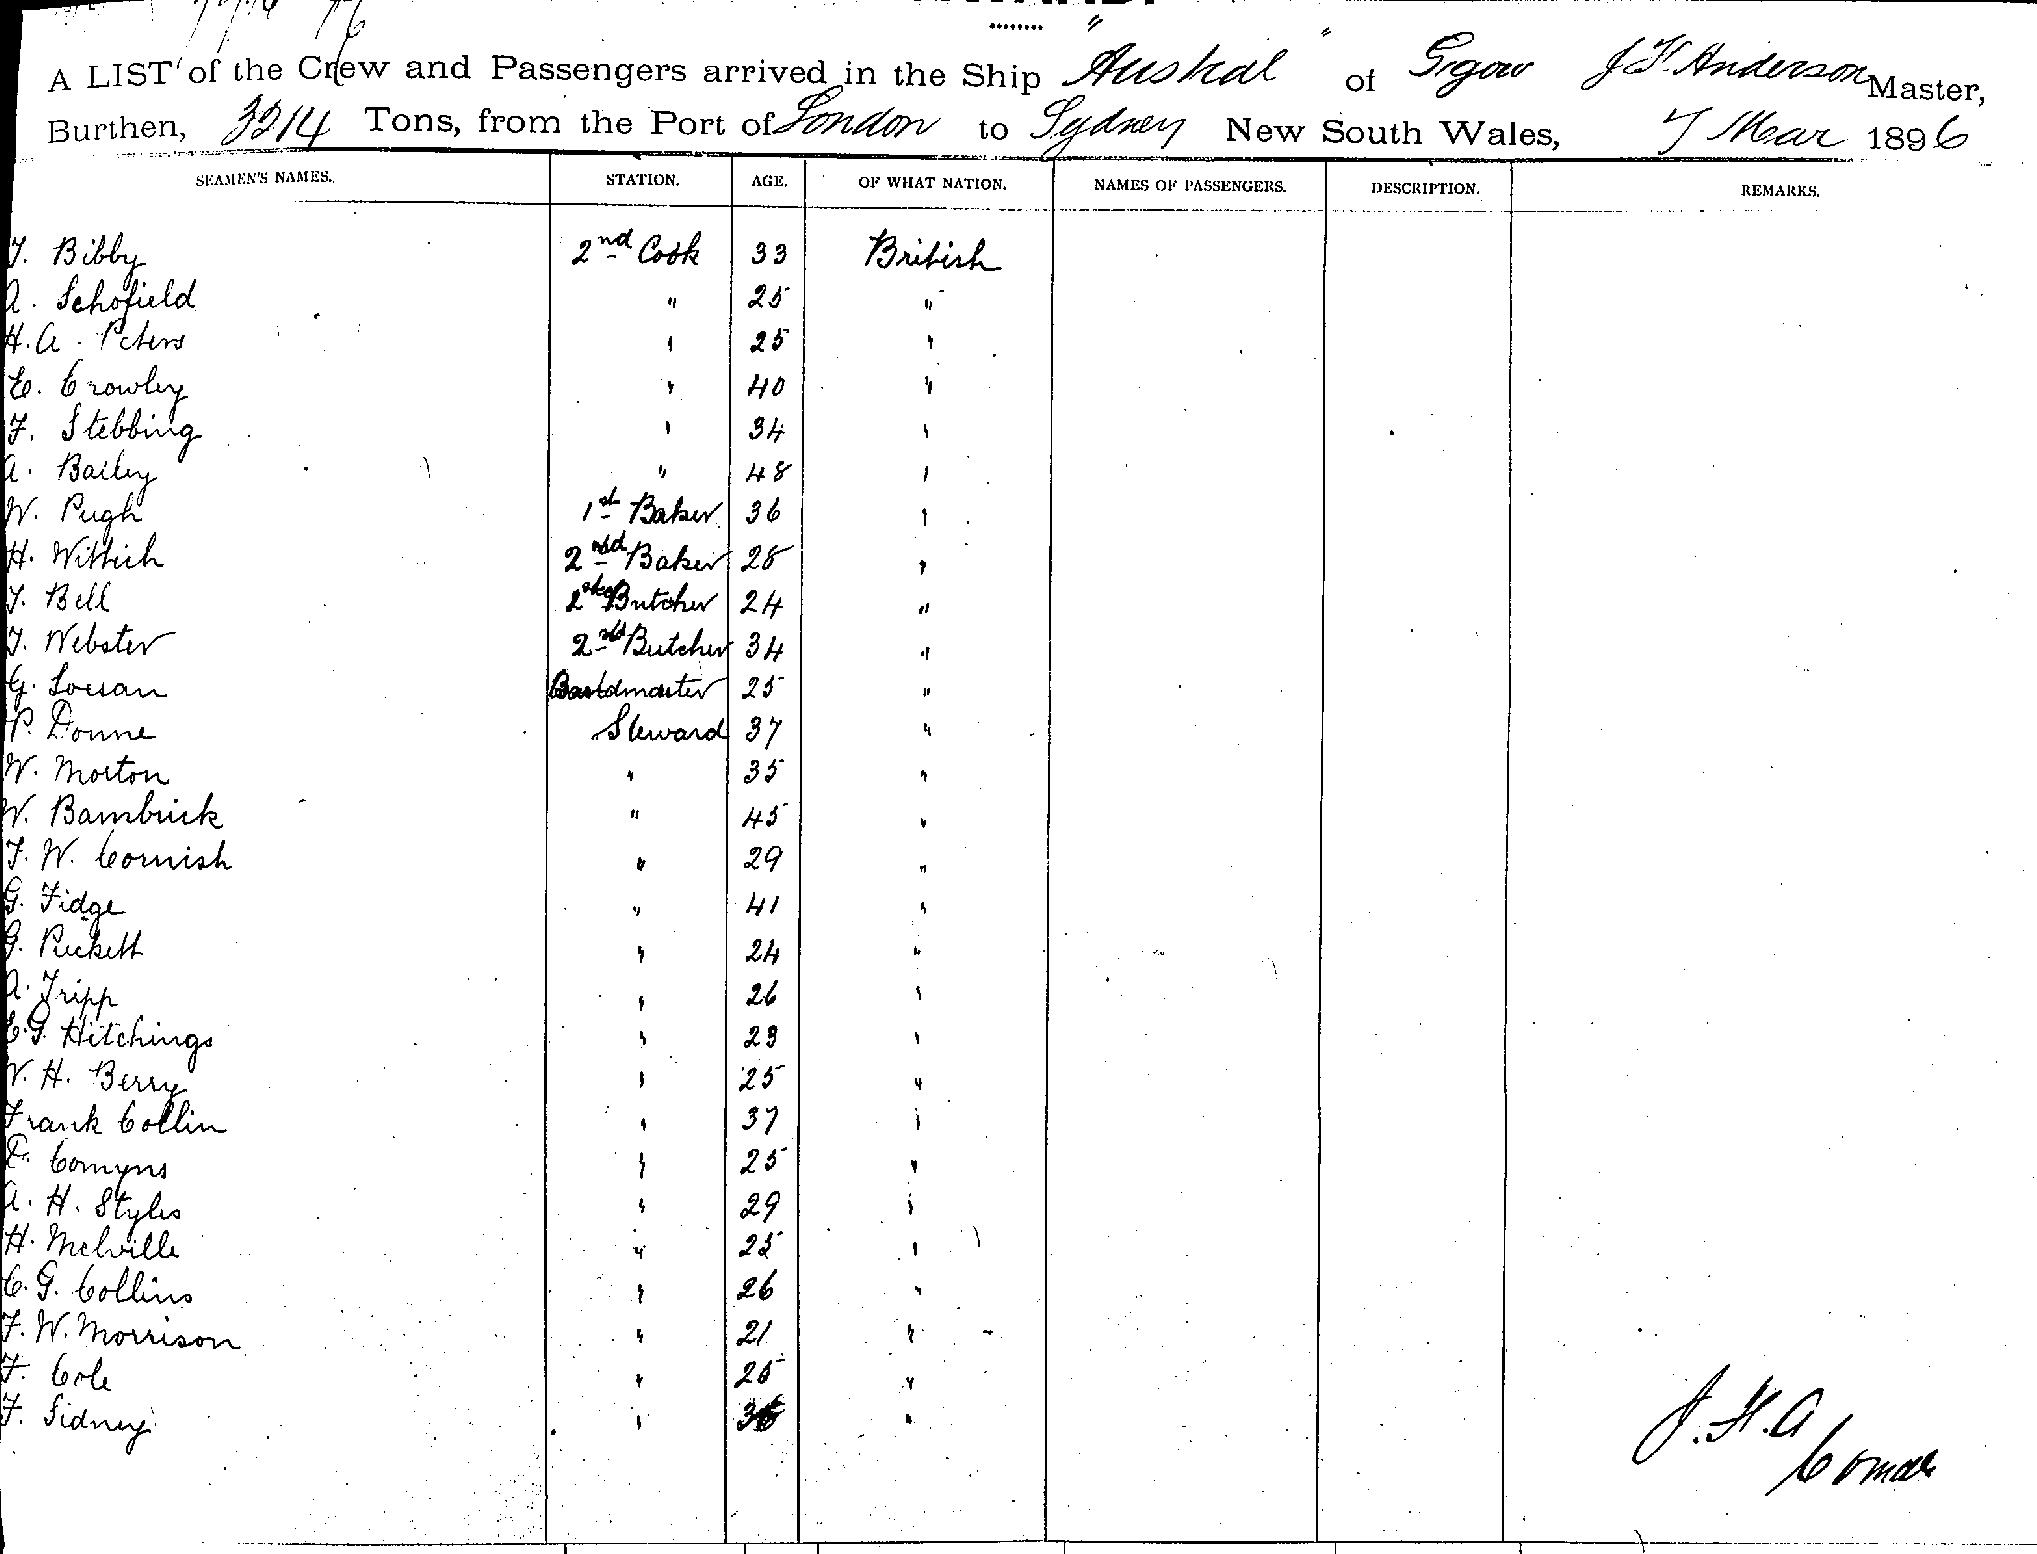 A LIST of the Crew and Passengers arrived in the Ship "Austral" of Ggow J. F. Anderson Master,
Burthen, 3214 Tons, from the Port of London to Sydney New South Wales, 7 Mar 1896
SEAMEN'S NAMES. STATION. AGE. OF WHAT NATION. NAMES OF PASSENGERS. DESCRIPTION. REMARKS.
T. Bibby 2nd Cook 33 British
A. Schofield " 25 "
H. A. Peters " 25 "
E. Crowley " 40 "
F. Stebbing " 34 "
A. Bailey " 48 "
W. Pugh 1st Baker 36 "
H. Wittich 2nd Baker 28 "
T. Bell Butcher 24 "
T. Webster 2nd Butcher 34 "
G. 25 "
P. Donne Steward 37 "
W. Morton " 35 "
W. Bambrick " 45 "
T. W. Cornish " 29 "
G. Fidge " 41 "
G. Rickett " 24 "
A. Tripp " 26 "
E. G. Hitchings " 23 "
W. H. Berry " 25 "
Frank Collin " 37 "
Comyns " 25 "
A. H. Styles " 29 "
H. Melville " 25 "
C. G. Collins " 26 "
F. W. Morrison " 21 "
F. Cole " 25 "
F. Sidney " "
J. F. A
Comdr